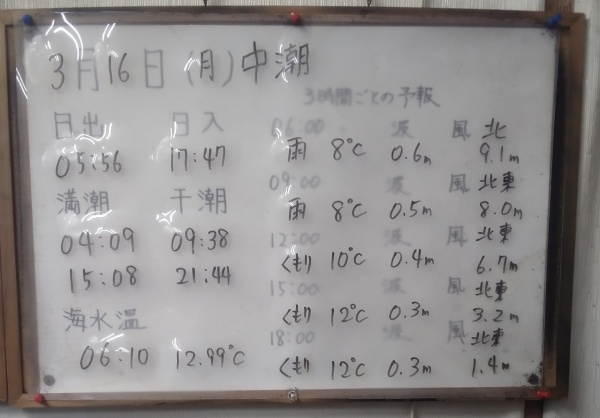 3月16日(月)中潮
日出 日入
05:56 17:47
満潮 干潮
04:09 09:38
15:08 21:44
海水温
06:10 12.99℃
3時間ごとの予報
06:00 波 風 北
雨 8℃ 0.6m 9.1m
09:00 波 風 北東
雨 8℃ 0.5m 8.0m
12:00 波 風 北東
くもり 10℃ 0.4m 6.7m
15:00 波 風 北東
くもり 12℃ 0.3m 3.2m
18:00 波 風 北東
くもり 12℃ 0.3m 1.4m